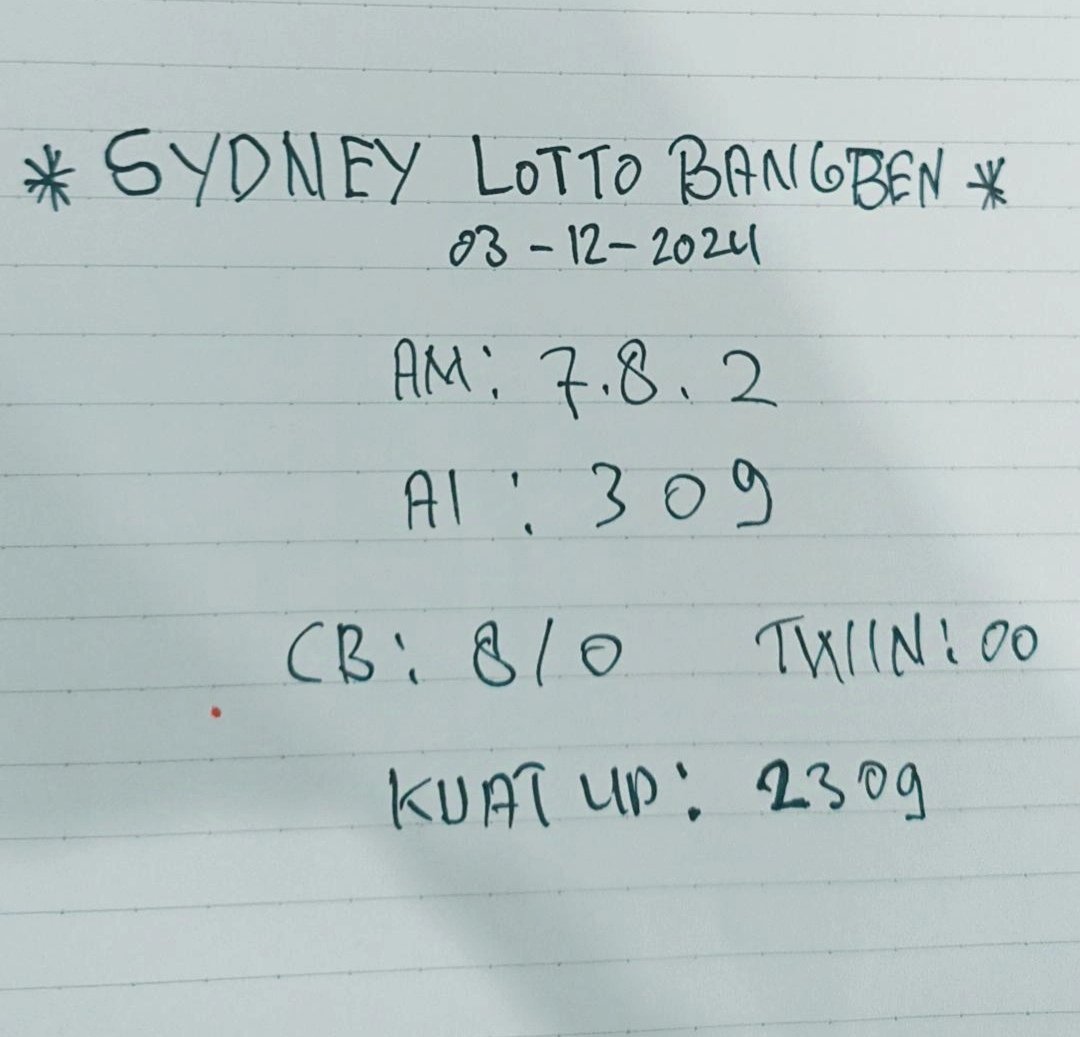 * SYDNEY LOTTO BANGBEN *
03-12-2024
AM: 7.8.2
AI: 309
CB: 8/0 TWIIN: 00
KUAT UP: 2309